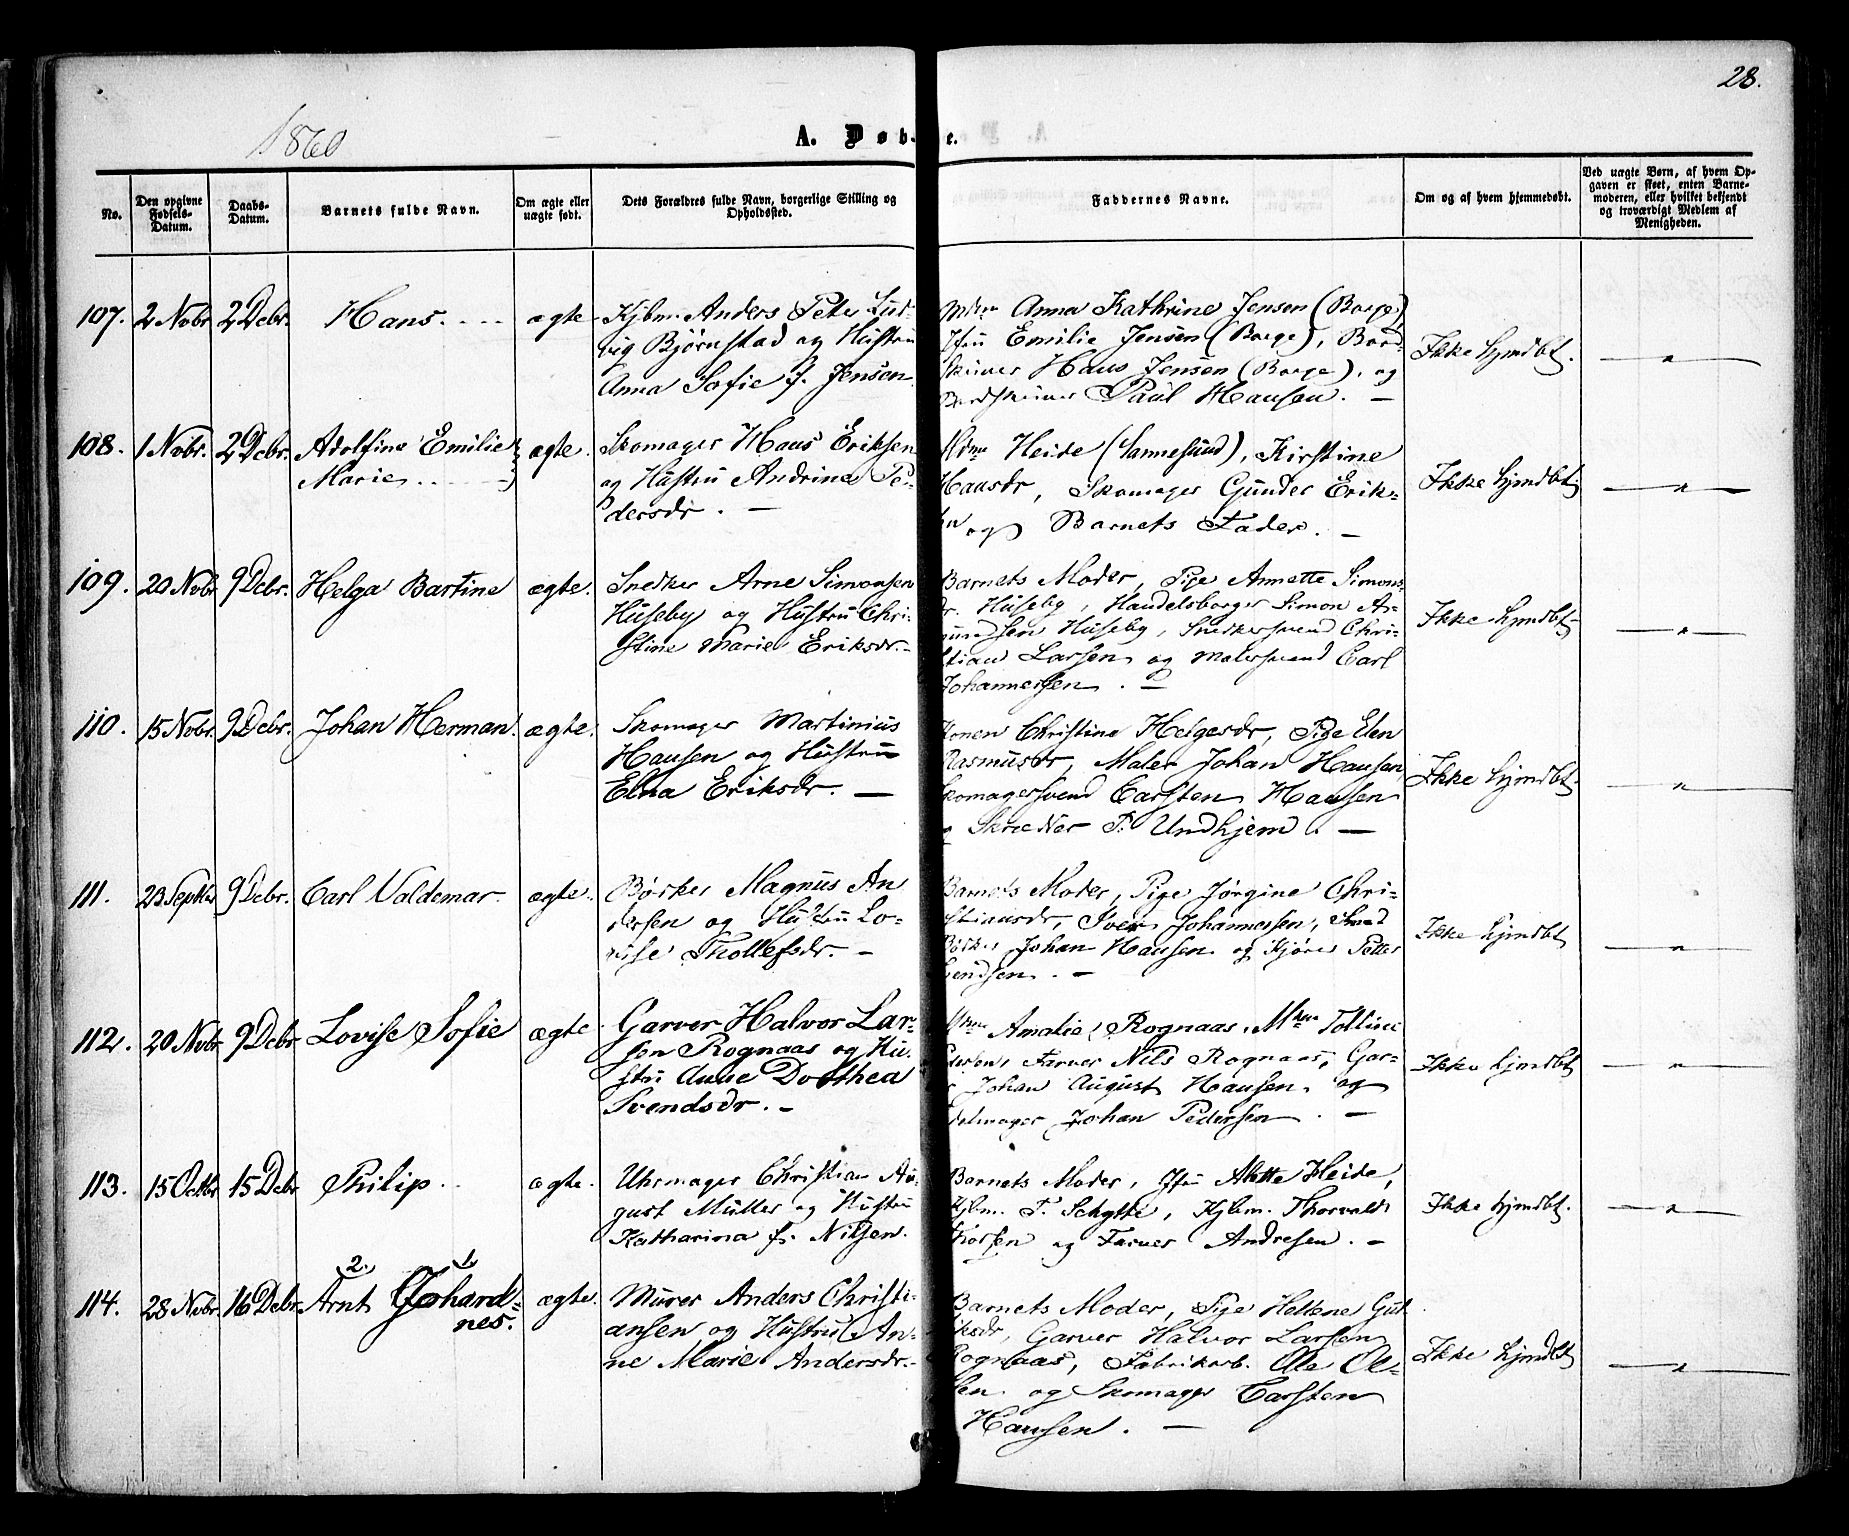 28.
1860
A. Døb- e.
No.
Den opgivne Fødsels-Datum.
Daabs-Datum.
Barnets fulde Navn.
Om ægte eller uægte født.
Dets Forældres fulde Navn, borgerlige Stilling og Opholdssted.
Faddernes Navne.
Om og af hvem hjemmedøbt.
Ved uægte Børn, af hvem Opgaven er skeet, enten Barnemoderen, eller hvilket bekjendt og troværdigt Medlem af Menigheden.
107. 2 Novbr 2 Debr. Hans. ægte
Kjbm. Anders Peter Lud-
vig Bjørnstad og Hustru
Anna Sofie f. Jensen
Mdm Anna Kathrine Jensen (Borge)
Jfru Emilie Jensen (Borge), Bord-
skriver Hans Jensen (Borge), og
Bordskriver Paul Hansen. —
Ikke hjmdbt.
108. 1 Novbr. 2 Debr. Adolfine Emilie
Marie ægte.
Skomager Hans Eriksen
og Hustru Andrine Pe-
dersdr. —
Mdme Heide (Sannesund), Kirstine
Hansdr, Skomager Gunder Erik-
sen og Barnets Fader. —
Ikke hjmdbt.
109. 20 Novbr 9 Debr. Helga Bartine ægte.
Snedker Arne Simonsen
Huseby og Hustru Chri-
stine Marie Eriksdr. -
Barnets Moder, Pige Annette Simons-
dr. Huseby, Handelsborger Simon A
mundsen Huseby, Snedkersvend Chri-
stian Larsen og Malersvend Carl
Johannessen. —
Ikke hjmdbt.
110. 15 Novbr. 9 Debr. Johan Herman. ægte.
Skomager Martinius
Hansen og Hustru
Elna Eriksdr. —
Konen Christine Helgesdr, Pige Elen
Rasmusdr, Maler Johan Hansen,
Skomagersvend Carsten Hansen
og Skrædder P. Undhjem. —
Ikke hjmdbt.
111. 23 Septbr 9 Debr. Carl Valdemar. ægte.
Bødker Magnus An
dersen og Hustru Lo-
vise Thollefsdr. —
Barnets Moder, Pige Jørgine Chri-
stiansdr, Iver Johannessen,
Bødker Johan Hansen og Kjører Petter
Svendsen. —
Ikke hjmdbt
112. 20 Novbr 9 Debr Lovise Sofie ægte
Garver Halvor Lar-
sen Rognaas og Hu-
stru Anne Dorthea
Svendsdr. —
Mdme Amalie Rognaas, Mdme Tolline
Pedersen, Farver Nils Rognaas, Gar-
ver Johan August Hansen og
Johan Pedersen. —
Ikke hjmdbt
113. 15 Octbr 15 Debr Philip. ægte.
Uhrmager Christian Au-
gust Müller og Hustru
Katharina f. Nilsen.
Barnets Moder, Jfru Alette Heide,
Kjbm. P. Schytte, Kjbm. Thorvald
Thorsen og Farver Andresen. —
Ikke hjmdbt.
2. 1.
114. 28 Novbr. 16 Debr. Arnt Johan-
nes. ægte.
Murer Anders Christi-
ansen og Hustru An-
ne Marie Andersdr. -
Barnets Moder, Pige Hellene Gut-
iksdr, Garver Halvor Larsen
Rognaas, Fabrikarb. Ole Ol-
sen og Skomager Carsten
Hansen. —
Ikke hjmdbt